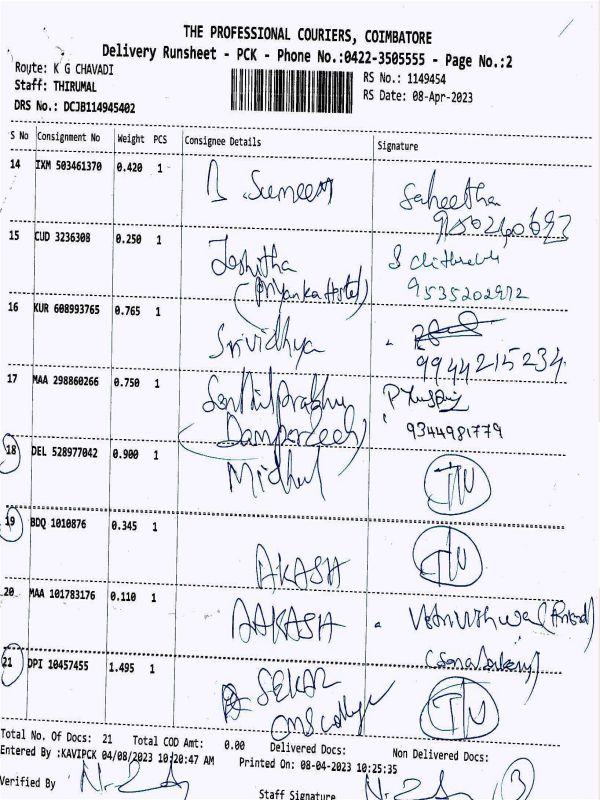 THE PROFESSIONAL COURIERS, COIMBATORE
Delivery Runsheet - PCK - Phone No.:0422-3505555 - Page No.:2
Route: K G CHAVADI
RS No.: 1149454
Staff: THIRUMAL
RS Date: 08-Apr-2023
DRS No.: DCJB114945402
S No Consignment No Weight PCS Consignee Details Signature
14 IXM 503461370 0.420 1 Sumeer Saheetha
15 CUD 3236308 0.250 1
(Priyanka Hostel) 9535202972
16 KUR 608993765 0.765 1 Srividhya
9944215234
17 MAA 298860266 0.750 1 Senthil Prabhu
9344981779
18 DEL 528977042 0.900 1 Midhul
19 BDQ 1010876 0.345 1 AKASH
20 MAA 101783176 0.110 1 AAKASH
21 DPI 10457455 1.495 1 SEKAR
CMS College
Total No. Of Docs: 21 Total COD Amt: 0.00 Delivered Docs: Non Delivered Docs:
Entered By :KAVIPCK 04/08/2023 10:20:47 AM Printed On: 08-04-2023 10:25:35
Verified By Staff Signature 3